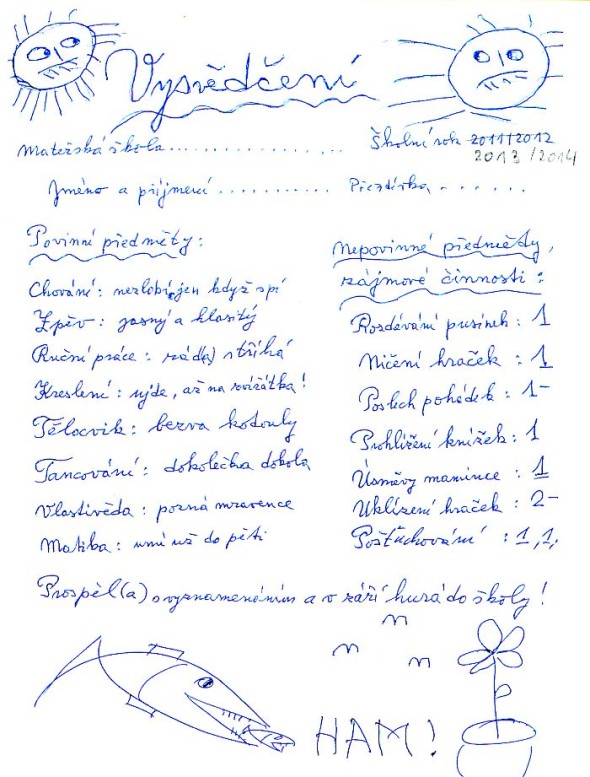 Vysvědčení
Mateřská škola.................. Školní rok 2011/2012
2013/2014
Jméno a příjmení .......... Přezdívka . . . . . .
Povinné předměty:
Chování: nezlobí, jen když spí
Zpěv: jasný a hlasitý
Ruční práce: rád(a) stříhá
Kreslení: ujde, až na zvířátka!
Tělocvik: bezva kotouly
Tancování: dokolečka dokola
Vlastivěda: pozná mravence
Matika: umí už do pěti
Nepovinné předměty,
zájmové činnosti:
Rozdávání pusinek: 1
Ničení hraček: 1
Poslech pohádek: 1-
Prohlížení knížek: 1
Úsměvy mamince: 1
Uklízení hraček: 2-
Pošťuchování: 1,1,
Prospěl(a) s vyznamenáním a v září hurá do školy!
HAM!